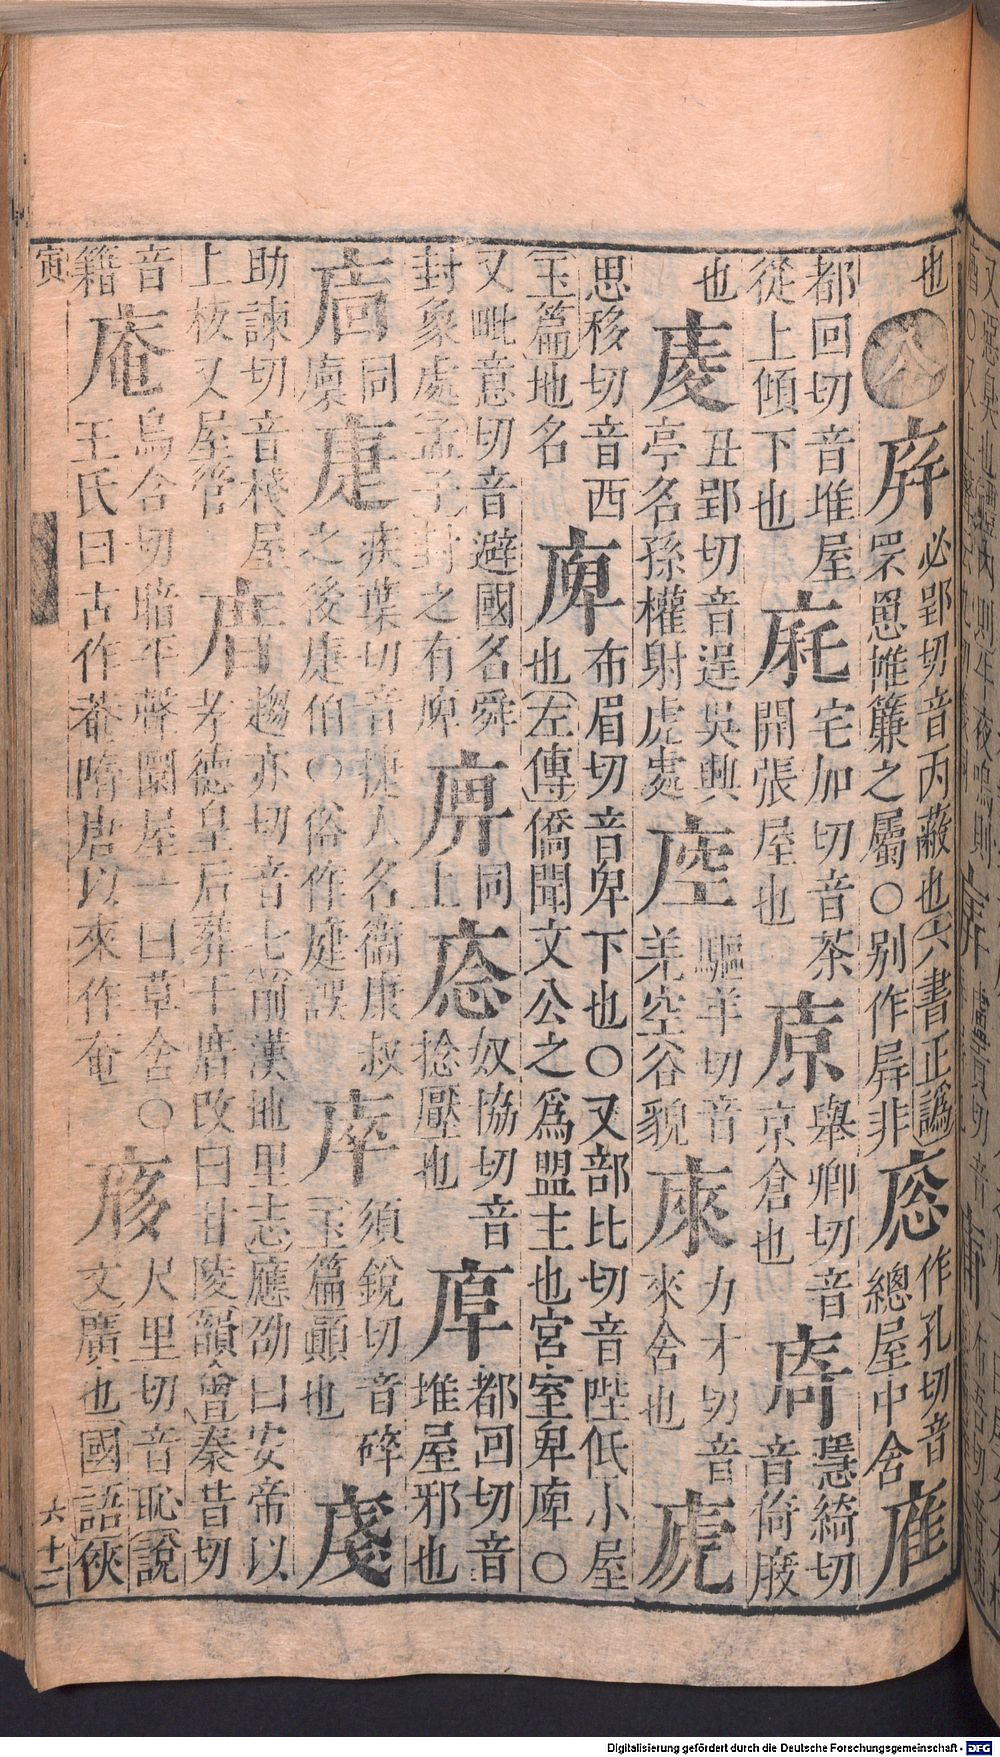 也
八
庰
必郢切音丙蔽也六書正譌
罘罳帷簾之屬〇別作屏非
作孔切音
總屋中舍
都回切音堆屋
從上傾下也
㡯
宅加切音茶
開張屋也
舉卿切音
京倉也
庪
㥯綺切
音倚庪
也
庱
丑郢切音逞吳興
亭名孫權射虎處
㢁
驅羊切音
羌空谷貌
庲
力才切音
來舍也
㡗
思移切音西
玉篇地名
庳
布眉切音卑下也〇又部比切音陛低小屋
也左傳僑聞文公之爲盟主也宮室卑庳〇
又毗意切音避國名舜
封象處孟子封之有庳
同
上
奴協切音
捻壓也
都回切音
堆屋邪也
同
廩
疾葉切音捷人名衞康叔
之後庫伯〇俗作庭誤
須銳切音碎
玉篇顚也
助諫切音棧屋
上板又屋簷
厝
趨亦切音七前漢地里志應劭曰安帝以
孝德皇后葬于厝改曰甘陵韻會秦昔切
音
籍
庵
烏合切暗平聲圜屋一曰草舍〇
王氏曰古作菴隋唐以來作奄
㢋
尺里切音恥說
文廣也國語俠
寅
六十三
Digitalisierung gefördert durch die Deutsche Forschungsgemeinschaft - DFG